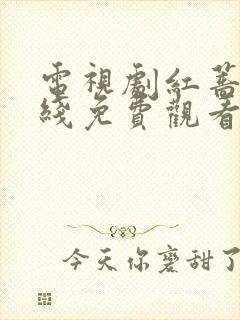 電視劇紅薔
綫免費觀看
今天你磨甜了